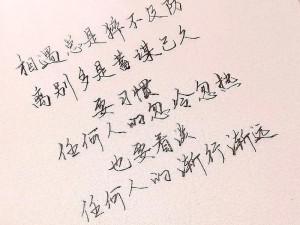 相遇总是猝不及防
离别多是蓄谋已久
要习惯
任何人的忽冷忽热
也要看淡
任何人的渐行渐远